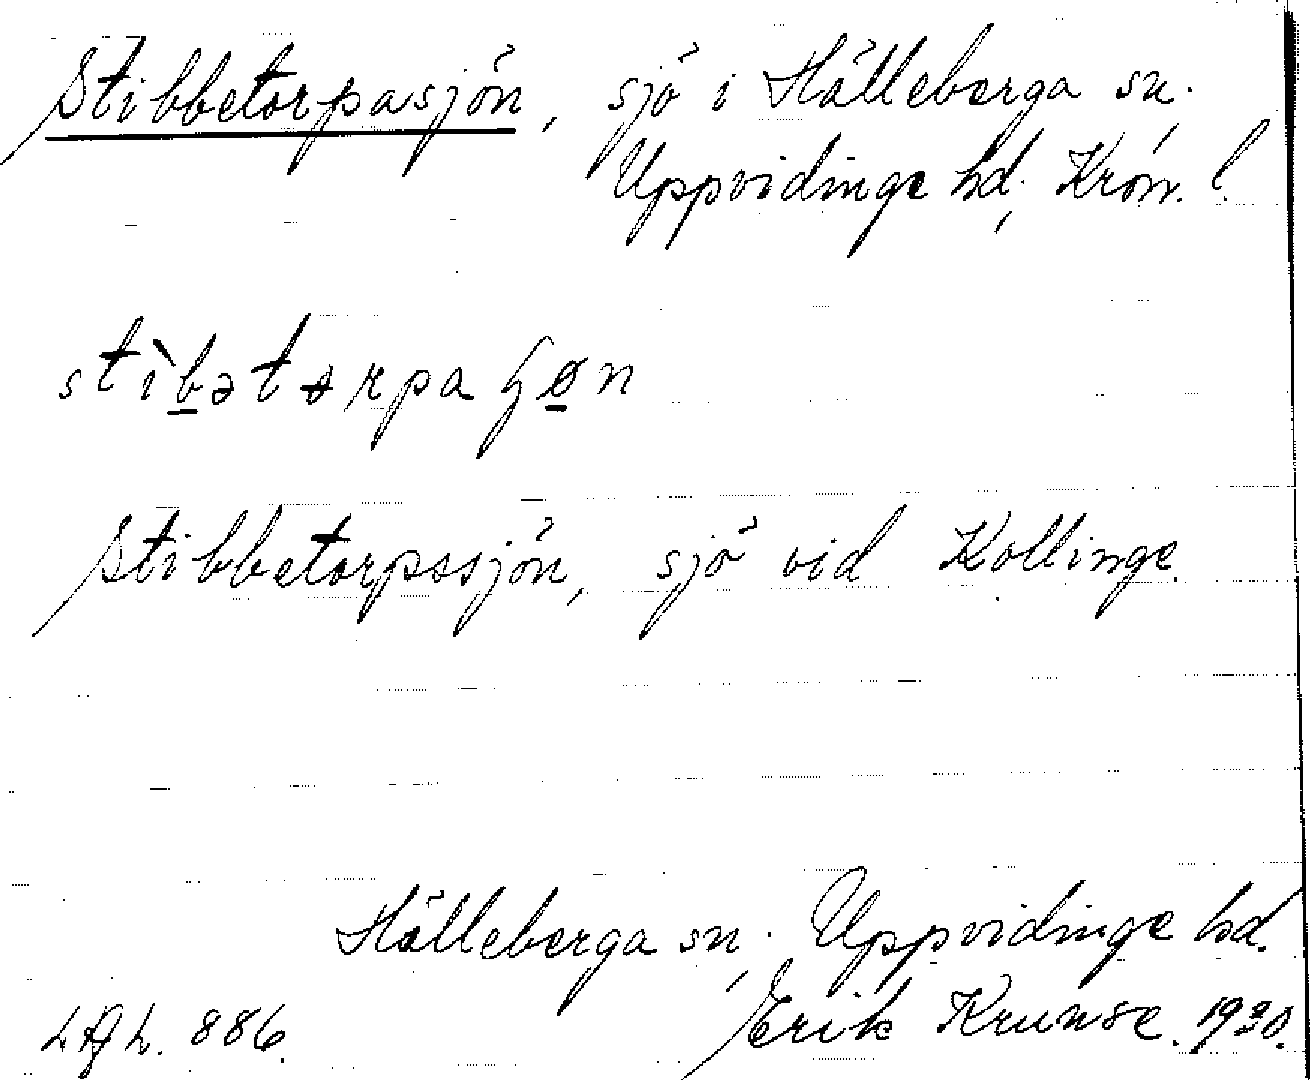 Stibbetorpasjön, sjö i Hälleberga sn.
Uppvidinge hd, Kron. l.
stìbətɵrpaʃøn
Stibbetorpssjön, sjö vid Kollinge.
Hälleberga sn, Uppvidinge hd.
Erik Krunse. 1930.
886.